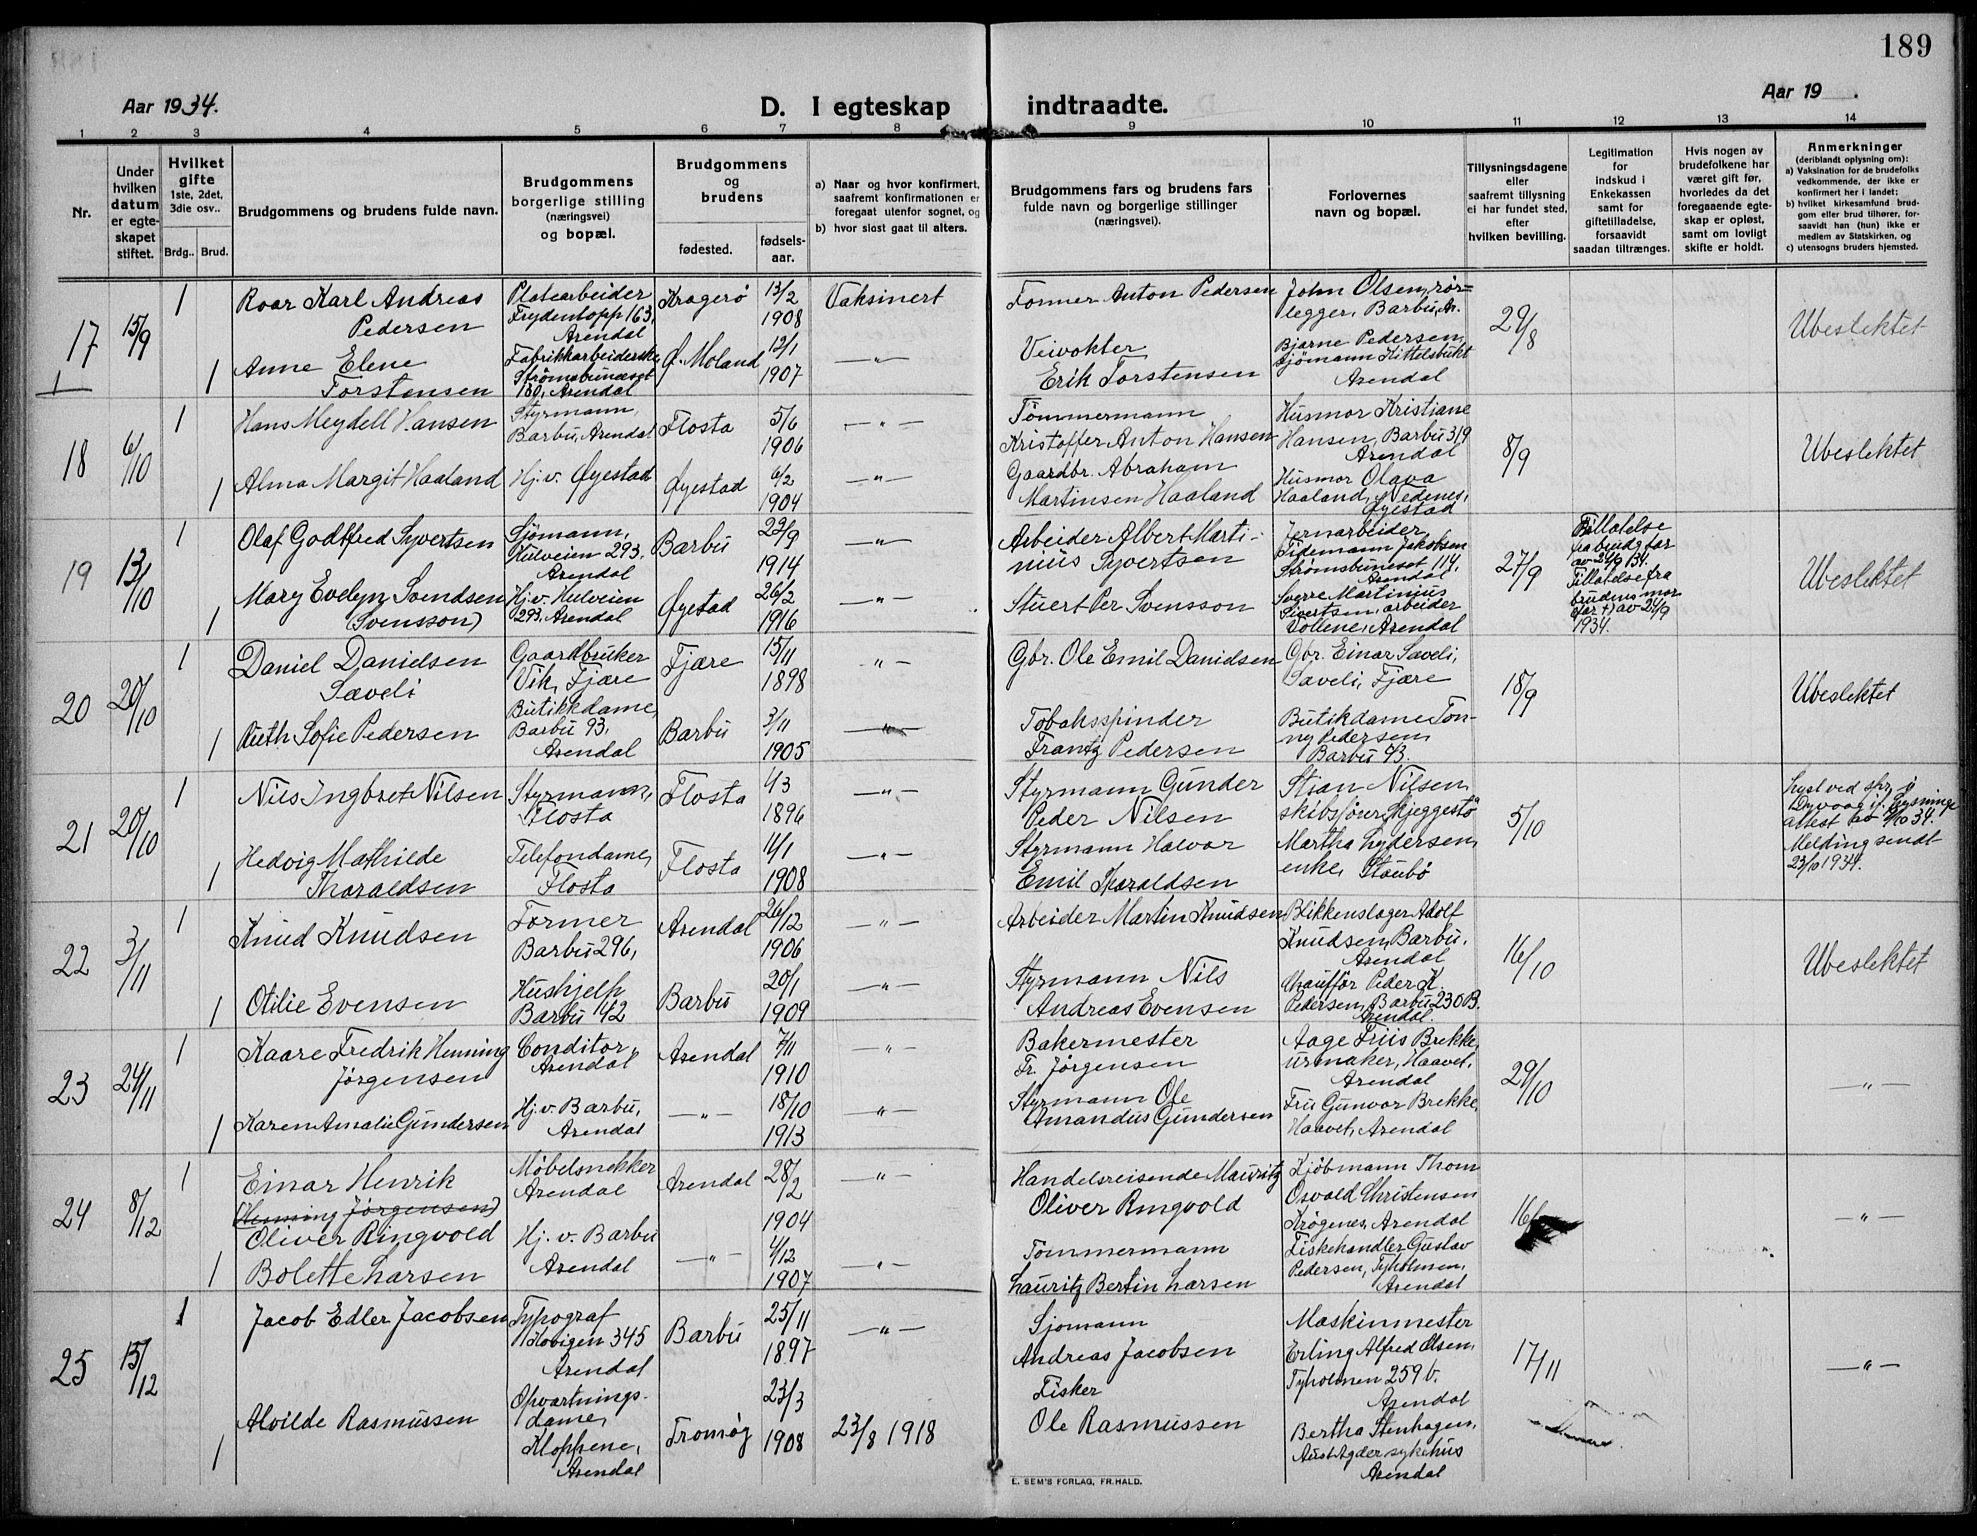 189
Aar 1934.
D. I egteskap indtraadte.
Aar 19 .
1 2 3 4 5 6 7 8 9 10 11 12 13 14
Nr.
Under
hvilken
datum
er egte-
skapet
stiftet.
Hvilket
gifte
1ste, 2det,
3die osv..
Brdg.. Brud.
Brudgommens og brudens fulde navn.
Brudgommens
borgerlige stilling
(næringsvei)
og bopæl.
Brudgommens
og
brudens
fødested.
fødsels-
aar.
a) Naar og hvor konfirmert,
saafremt konfirmationen er
foregaat utenfor sognet, og
b) hvor sidst gaat til alters.
Brudgommens fars og brudens fars
fulde navn og borgerlige stillinger
(næringsvei).
Forlovernes
navn og bopæl.
Tillysningsdagene
eller
saafremt tillysning
ei har fundet sted,
efter
hvilken bevilling.
Legitimation
for
indskud i
Enkekassen
samt for
giftetilladelse,
forsaavidt
saadan tiltrænges.
Hvis nogen av
brudefolkene har
været gift før,
hvorledes da det
foregaaende egte-
skap er opløst,
samt om lovligt
skifte er holdt.
Anmerkninger
(deriblandt oplysning om):
a) Vaksination for de brudefolks
vedkommende, der ikke er
konfirmert her i landet;
b) hvilket kirkesamfund brud-
gom eller brud tilhører, for-
saavidt han (hun) ikke er
medlem av Statskirken, og
c) utensogns bruders hjemsted.
17
1
15/9
1
Roar Karl Andreas
Pedersen
Platearbeider
Frydentopp 163,
Arendal
Kragerø
13/2
1908
Vaksinert
Former Anton Pedersen
John Olsen, rør=
legger, Barbu, Ar.
29/8
Ubeslektet
1
Anne Elene
Torstensen
Fabrikkarbeiderske
Strømsbuneset
180, Arendal
Ø. Moland
12/1
1907
—"—
Veivokter
Erik Torstensen
Bjarne Pedersen,
sjømann Kittelsbukt
Arendal
18
6/10
1
Hans Meydell Hansen
Styrmann,
Barbu, Arendal
Flosta
5/6
1906
—"—
Tømmermann
Kristoffer Anton Hansen
Husmor Kristiane
Hansen, Barbu 319
Arendal
8/9
Ubeslektet
1
Alma Margit Haaland
Hj. v. Øyestad
Øyestad
6/2
1904
—"—
Gaardbr. Abraham
Martinsen Haaland
Husmor Olava
Haaland, Nedenes,
Øyestad
19
13/10
1
Olaf Godtfred Syvertsen
Sjømann,
Hulveien 293.
Arendal
Barbu
29/9
1914
—"—
Arbeider Albert Marti-
nius Syvertsen
Jernarbeider
Tidemann Jakobsen
Strømsbuneset 114,
Arendal
27/9
Tillatelse
fra brudg far
av 24/9 34.
Tillatelse fra
brudens mor
(far +) av 24/9
1934.
Ubeslektet
1
Mary Evelyn Svendsen
(Svensson)
Hj. v. Hulveien
293, Arendal
Øyestad
26/2
1916
—"—
Stuert Per Svensson
Sverre Martinius
Sivertsen, arbeider
Vollene, Arendal
20
20/10
1
Daniel Danielsen
Sæveli
Gaardbruker
Vik, Fjære
Fjære
15/11
1898
"—
Gbr. Ole Emil Danielsen
Gbr. Einar Sæveli,
Sæveli, Fjære
18/9
Ubeslektet
1
Ruth Sofie Pedersen
Butikkdame,
Barbu 93,
Arendal
Barbu
3/11
1905
—"—
Tobaksspinder
Frantz Pedersen
Butikdame Ton-
ny Pedersen,
Barbu 93.
21
20/10
1
Nils Ingbret Nilsen
Styrmann,
Flosta
Flosta
4/3
1896
—"—
Styrmann Gunder
Peder Nilsen
Stian Nilsen,
skibsfører, Skjeggestø
5/10
Lyst ved spr. i
Dyvaag if. lysnings
attest av 9/10 34.
Melding sendt
23/10 1934.
1
Hedvig Mathilde
Tharaldsen
Telefondame,
Flosta
Flosta
11/1
1908
—"—
Styrmann Halvor
Emil Tharaldsen
Martha Lydersen,
enke, Staubø
22
3/11
1
Knud Knudsen
Former
Barbu 296,
Arendal
26/12
1906
—"—
Arbeider Martin Knudsen
Blikkenslager Adolf
Knudsen, Barbu,
Arendal
16/10
Ubeslektet
1
Otilie Evensen
Hushjelp
Barbu 142
Barbu
20/1
1909
—"—
Styrmann Nils
Andreas Evensen
Chauffør Peder K.
Pedersen, Barbu 230 B.
Arendal.
23
24/11
1
Kaare Fredrik Henning
Jørgensen
Conditor,
Arendal
Arendal
7/11
1910
—"—
Bakermester
Fr. Jørgensen
Aage Friis Brekke,
urmaker, Haavet,
Arendal
29/10
—"—
1
Karen Amalie Gundersen
Hj. v. Barbu,
Arendal
—"—
18/10
1913
—"—
Styrmann Ole
Amandus Gundersen
Fru Gunvor Brekke,
Haavet, Arendal
24
8/12
1
Einar Henrik
(Henning Jørgensen)
Oliver Ringvold
Møbelsnekker
Arendal
Arendal
28/2
1904
—"—
Handelsreisende Mauritz
Oliver Ringvold
Kjøbmann Thom
Osvald Christensen
Krøgenes, Arendal
16/
—"—
1
Bolette Larsen
Hj. v. Barbu
Arendal
—"—
4/12
1907
—"—
Tømmermann
Lauritz Bertin Larsen
Fiskehandler Gustav
Pedersen, Tyholmen,
Arendal
25
15/12
1
Jacob Edler Jacobsen
Typograf
Kovigen 345
Arendal
Barbu
25/11
1897
—"—
Sjømann
Andreas Jacobsen
Maskinmester
Erling Alfred Olsen,
Tyholmen 259 b.
Arendal
17/11
—"—
1
Alvilde Rasmussen
Opvartnings-
dame,
Kloppene,
Arendal
Tromøy
23/3
1908
23/8 1918
Fisker
Ole Rasmussen
Bertha Stenhagen,
Aust Agder sykehus
Arendal
E. SEM'S FORLAG, FR.HALD.